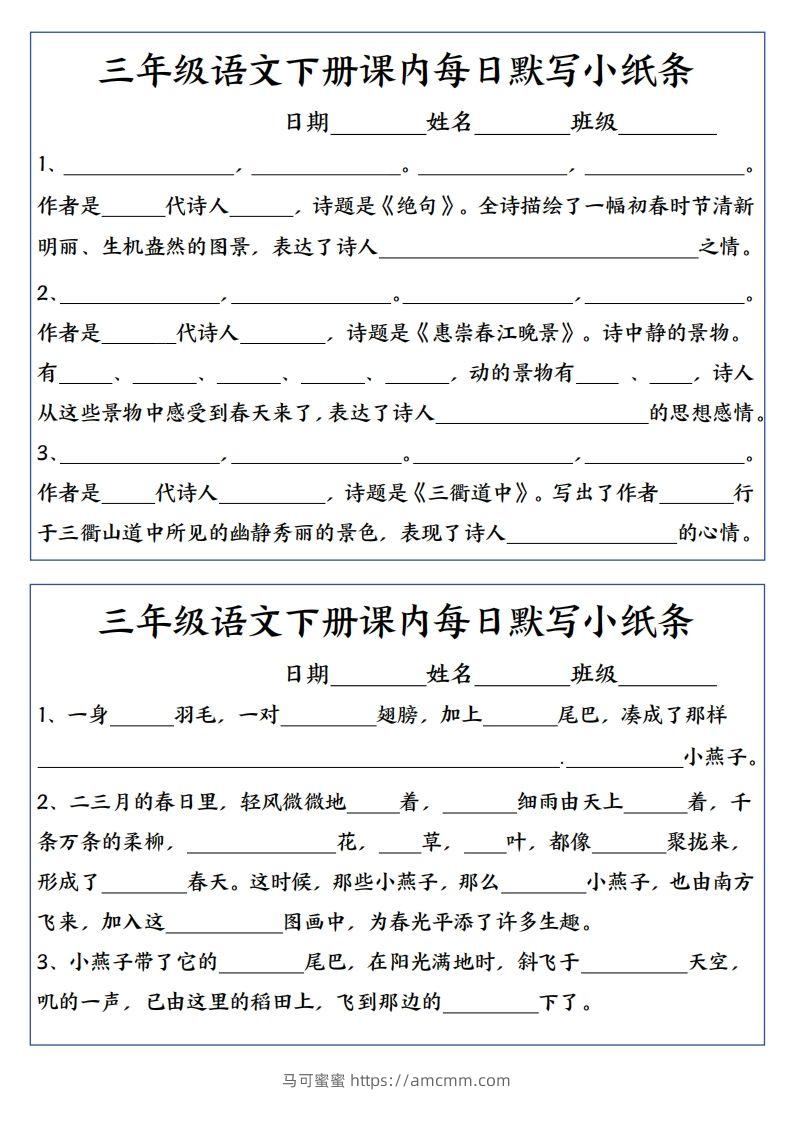 三年级语文下册课内每日默写小纸条
日期________姓名________班级________
1、________________,______________。______________,______________。
作者是______代诗人______,诗题是《绝句》。全诗描绘了一幅初春时节清新
明丽、生机盎然的图景,表达了诗人______________________________之情。
2、_______________,_______________。________________,_______________。
作者是_______代诗人________,诗题是《惠崇春江晚景》。诗中静的景物。
有_____、______、______、______、______,动的景物有____ 、____,诗人
从这些景物中感受到春天来了,表达了诗人____________________的思想感情。
3、_______________,________________。_______________,_______________。
作者是_____代诗人__________,诗题是《三衢道中》。写出了作者_______行
于三衢山道中所见的幽静秀丽的景色,表现了诗人________________的心情。
三年级语文下册课内每日默写小纸条
日期________姓名________班级________
1、一身______羽毛,一对_________翅膀,加上_______尾巴,凑成了那样
_________________________________________________.___________小燕子。
2、二三月的春日里,轻风微微地_____着,_______细雨由天上______着,千
条万条的柔柳,______________花,____草,____叶,都像_______聚拢来,
形成了________春天。这时候,那些小燕子,那么________小燕子,也由南方
飞来,加入这___________图画中,为春光平添了许多生趣。
3、小燕子带了它的________尾巴,在阳光满地时,斜飞于__________天空,
叽的一声,已由这里的稻田上,飞到那边的_________下了。
马可蜜蜜 https://amcmm.com